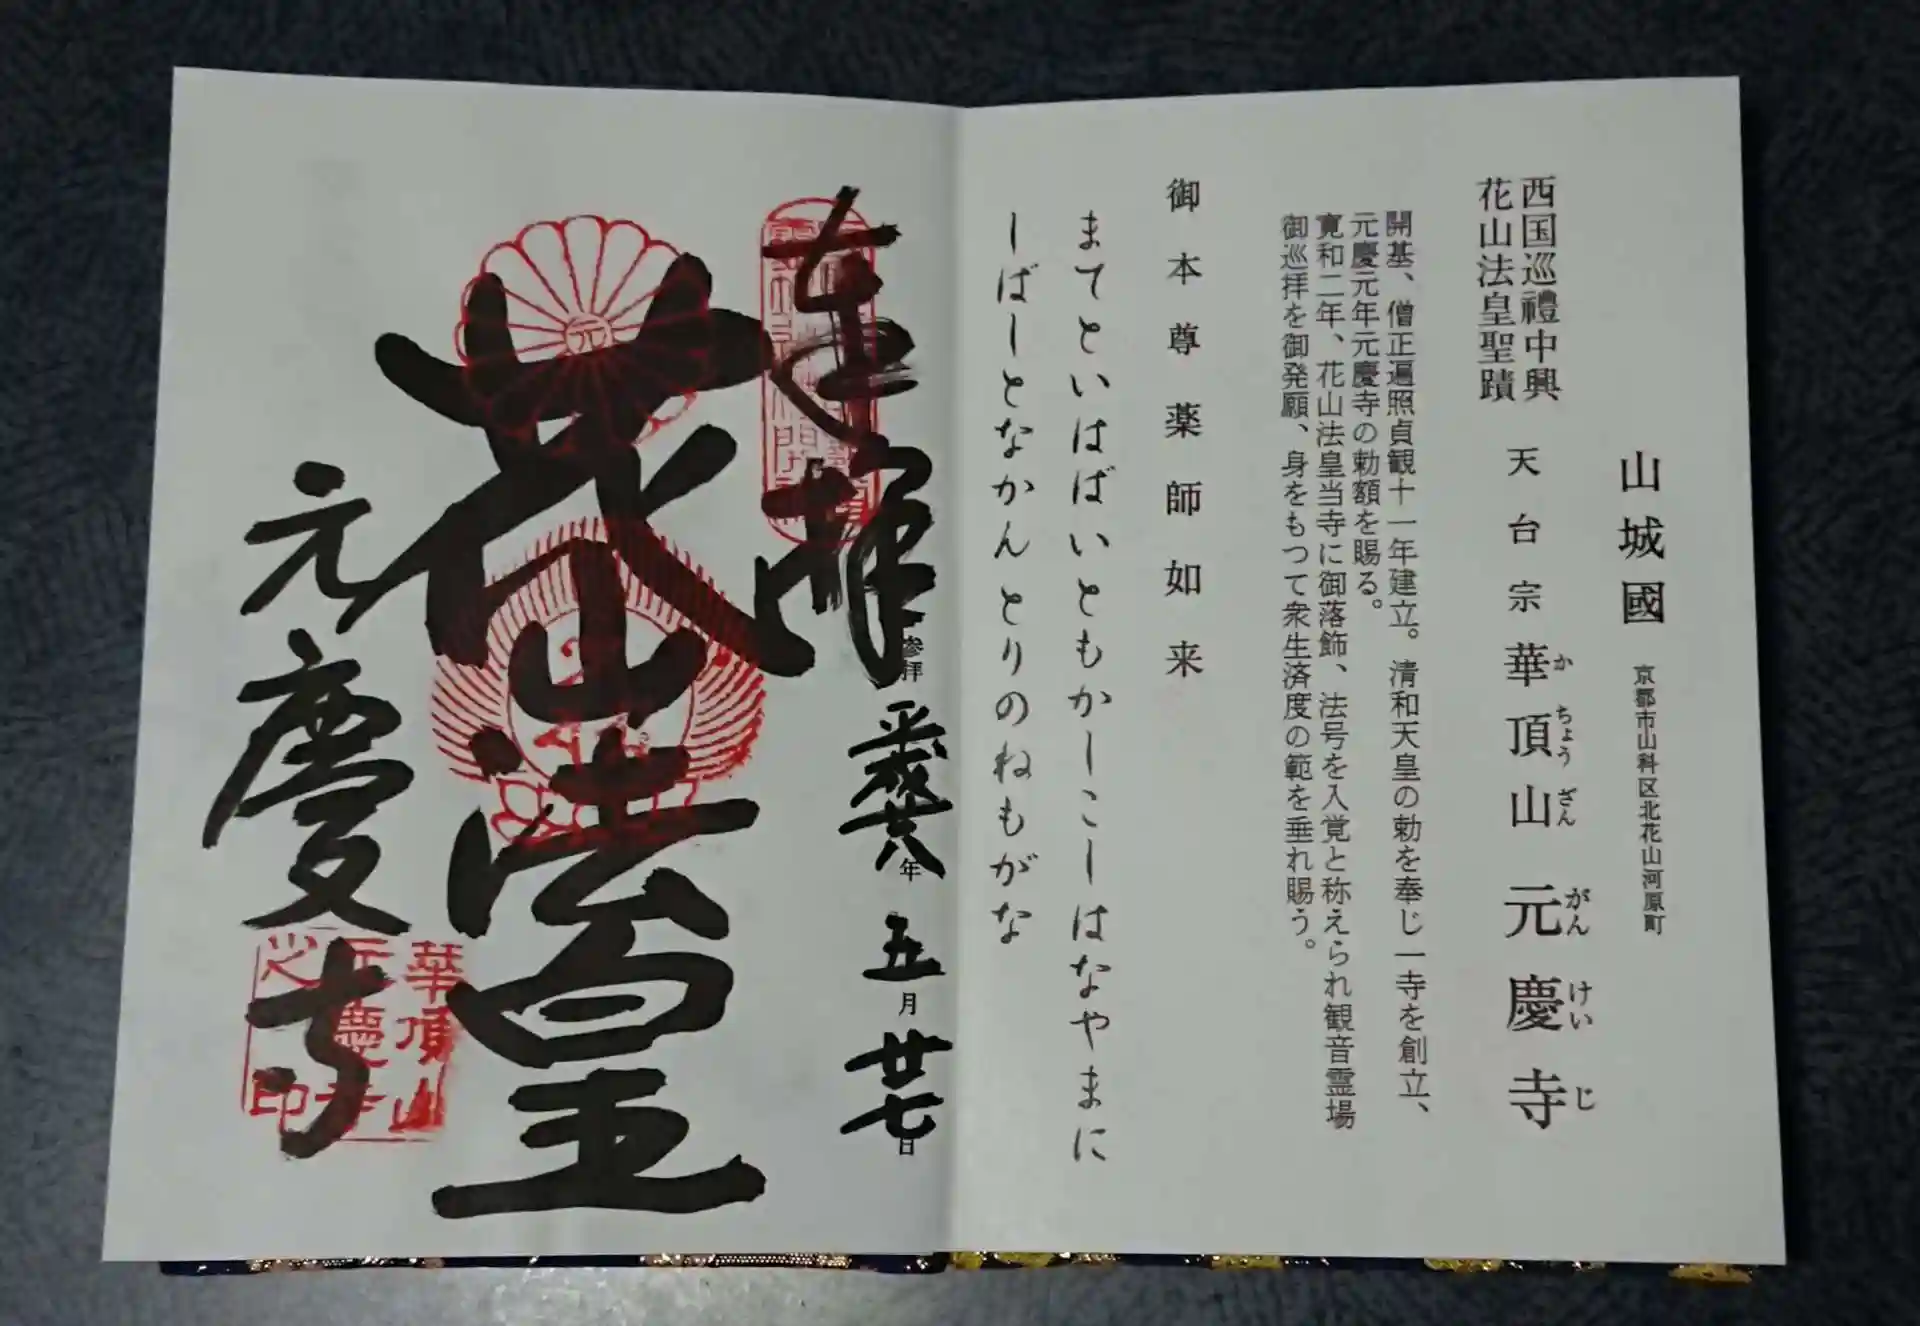 山城國 京都市山科区北花山河原町
西国巡禮中興
花山法皇聖蹟
天台宗 華頂山 元慶寺
かちょうざん がんけいじ
開基、僧正遍照貞観十一年建立。清和天皇の勅を奉じ一寺を創立、
元慶元年元慶寺の勅額を賜る。
寛和二年、花山法皇当寺に御落飾、法号を入覚と称えられ観音霊場
御巡拝を御発願、身をもつて衆生済度の範を垂れ賜う。
御本尊薬師如来
まてといはばいともかしこしはなやまに
しばしとなかんとりのねもがな
奉拝
参拝 平成廿八年 五月 廿七日
花山法皇
元慶寺
元
華頂山
元慶寺
之印